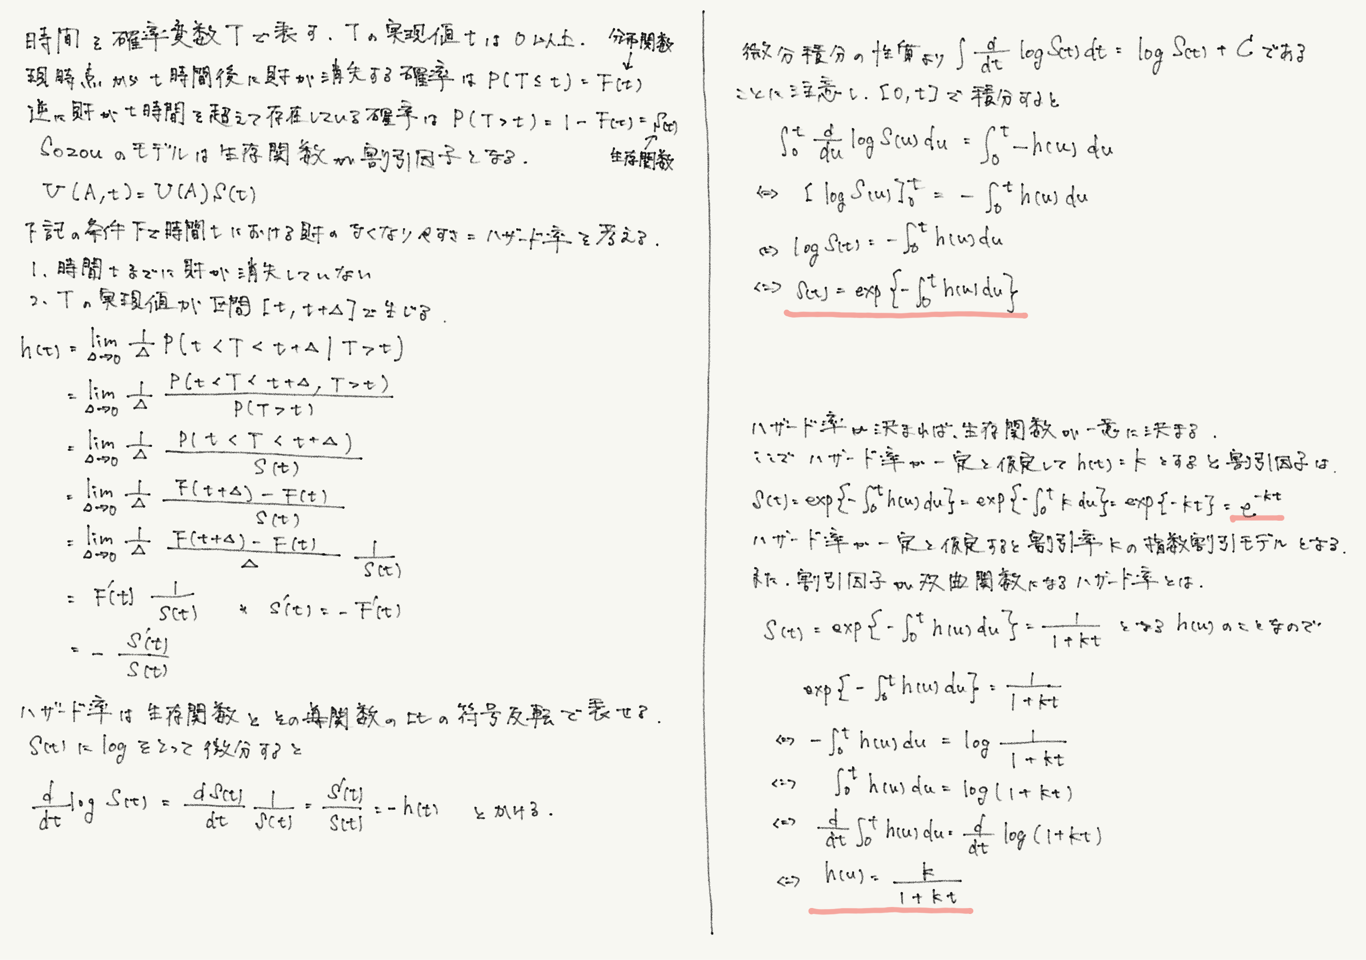 時間を確率変数Tで表す. Tの実現値tは0以上.
分布関数
現時点からt時間後に財が消失する確率はP(T≤t)=F(t)
逆に財がt時間を超えて存在している確率はP(T>t)=1-F(t)=S(t)
生存関数
Sozouのモデルは生存関数が割引因子となる.
V(A,t)=V(A)S(t)
下記の条件下で時間tにおける財のなくなりやすさ=ハザード率を考える.
1. 時間tまでに財が消失していない
2. Tの実現値が区間[t, t+Δ]で生じる.
h(t) = lim Δ→0 1/Δ P(t<T<t+Δ|T>t)
= lim Δ→0 1/Δ P(t<T<t+Δ, T>t)/P(T>t)
= lim Δ→0 1/Δ P(t<T<t+Δ)/S(t)
= lim Δ→0 1/Δ F(t+Δ)-F(t)/S(t)
= lim Δ→0 1/Δ F(t+Δ)-F(t)/Δ 1/S(t)
= F'(t) 1/S(t) * S'(t)=-F'(t)
= - S'(t)/S(t)
ハザード率は生存関数とその導関数の比の符号反転で表せる.
S(t)にlogをとって微分すると
d/dt log S(t) = dS(t)/dt 1/S(t) = S'(t)/S(t) = -h(t) とかける.
微分積分の性質より∫ d/dt log S(t)dt = log S(t) + C である
ことに注意し. [0,t]で積分すると
∫₀ᵗ d/du log S(u)du = ∫₀ᵗ -h(u)du
⇔ [log S(u)]₀ᵗ = -∫₀ᵗ h(u)du
⇔ log S(t) = -∫₀ᵗ h(u)du
⇔ S(t) = exp{-∫₀ᵗ h(u)du}
ハザード率が決まれば、生存関数が一意に決まる.
ここで ハザード率が一定と仮定してh(t)=kとすると割引因子は.
S(t)=exp{-∫₀ᵗ h(u)du}=exp{-∫₀ᵗ k du}=exp{-kt}=e^{-kt}
ハザード率が一定と仮定すると割引率kの指数割引モデルとなる.
また. 割引因子が双曲関数になるハザード率とは.
S(t)=exp{-∫₀ᵗ h(u)du}=1/1+kt となるh(u)のことなので
exp{-∫₀ᵗ h(u)du}=1/1+kt
⇔ -∫₀ᵗ h(u)du = log 1/1+kt
⇔ ∫₀ᵗ h(u)du = log(1+kt)
⇔ d/dt ∫₀ᵗ h(u)du = d/dt log(1+kt)
⇔ h(u) = k/1+kt